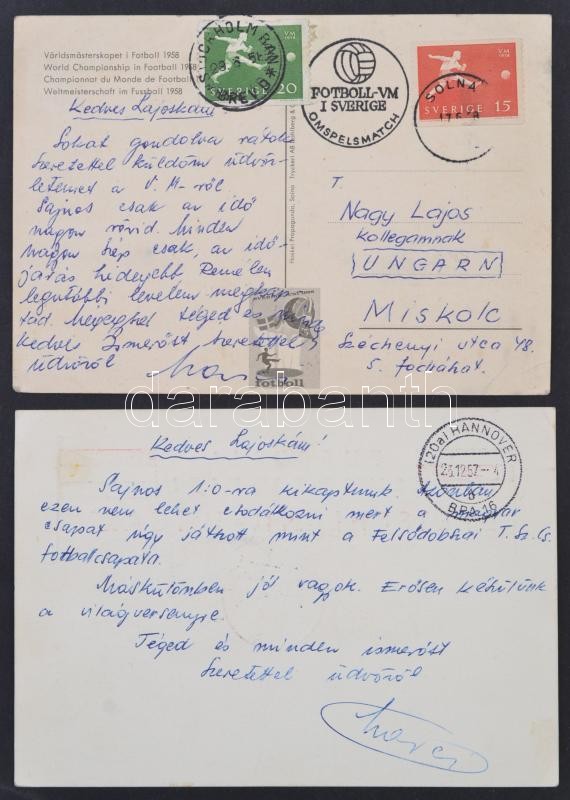 Världsmästerskapet i Fotboll 1958
World Championship in Football 1958
Championnat du Monde de Football
Weltmeisterschaft im Fussball 1958
STOCKHOLM BAN
VM 1958
SVERIGE 20
FOTBOLL-VM
I SVERIGE
OMSPELSMATCH
VM 1958
SVERIGE 15
SOLNA
17.6.58
Kedves Lajoskám!
Sokat gondolva rátok
szeretettel küldöm üdvöz-
letemet a V.M-ről
Sajnos csak az idő
nagyon rövid. Minden
nagyon szép csak, az idő-
járás hidegebb. Remélem
legutóbbi levelem megkap-
tad. Téged és
kedves Ismerőst szeretettel
üdvözöl
T.
Nagy Lajos
Kollegámnak
UNGARN
Miskolc
Széchenyi utca 48.
5. focháhat.
fotboll
darabanth
Kedves Lajoskám!
(20a) HANNOVER
23.12.57.-4
b
BPA 16
Sajnos 1:0-ra kikaptunk. Azonban
ezen nem lehet csodálkozni mert a magyar
csapat úgy játszott mint a Felsődobszai T.Sz.Cs.
fotbalcsapata.
Máskülömben jól vagyok. Erősen készülünk
a világversenyre.
Téged és minden ismerőst
Szeretettel üdvözöl